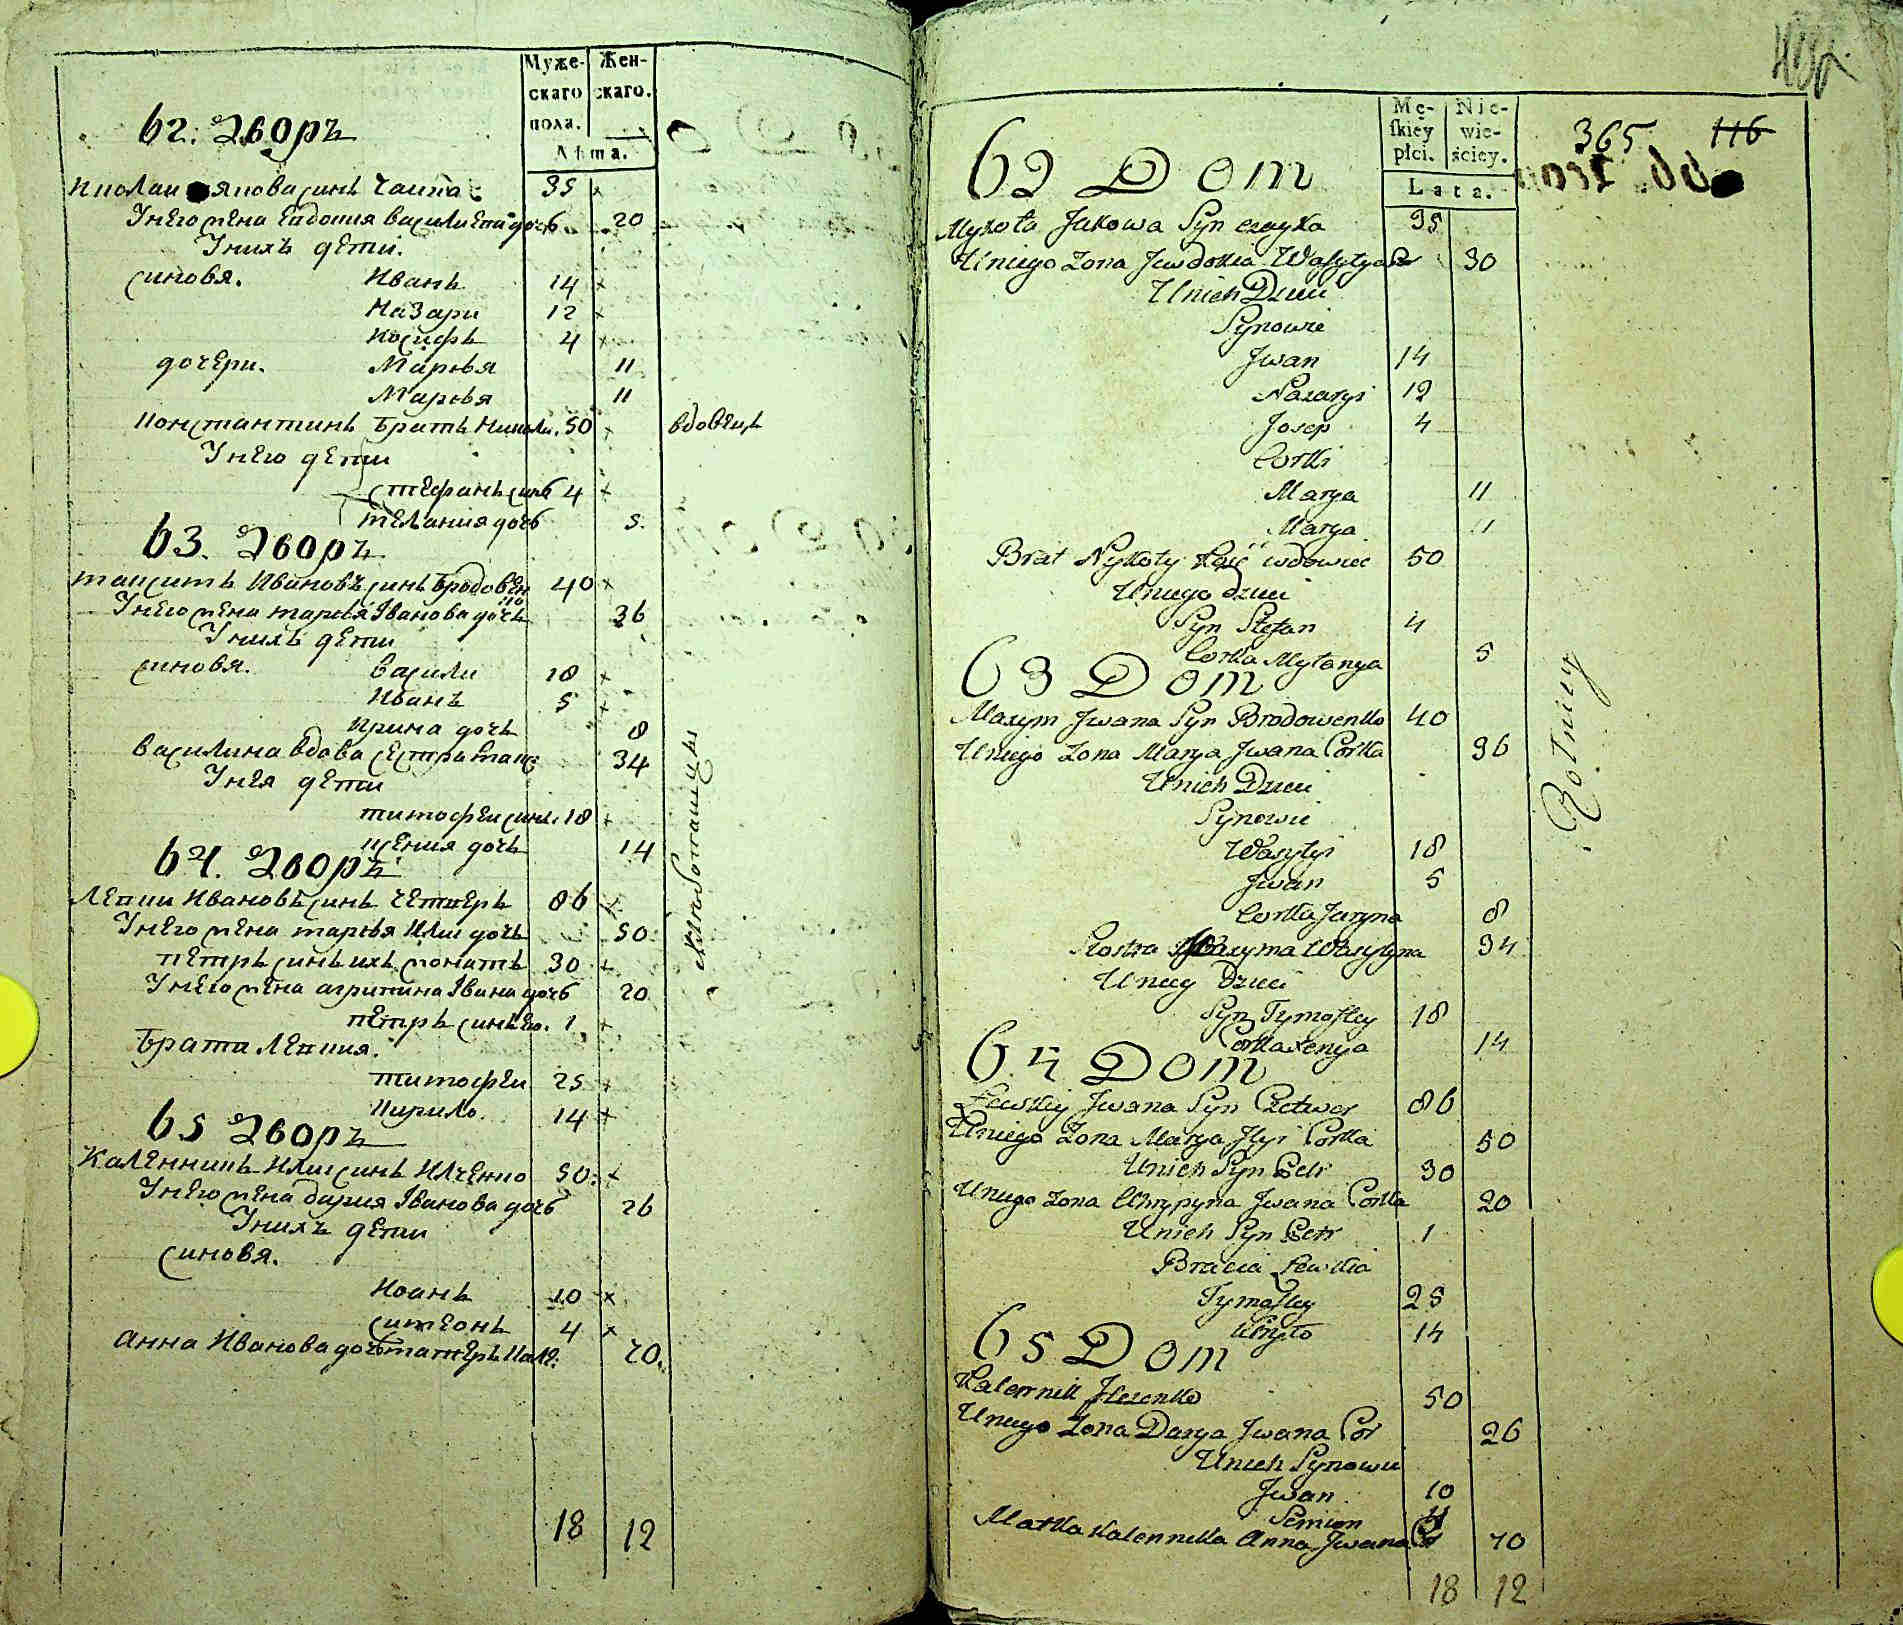 Мужескаго пола. Женскаго.
Лѣта.
62. Дворъ
Николаи Яковa синъ Чаика 35
У него жена Евдокия Василиева дочь 20
У нихъ дети.
синовя. Иванъ 14
Назари 12
Иосифъ 4
дочери. Марья 11
Марья 11
Константинъ братъ Николи. 50 вдовецъ
У него дети
Стефанъ синъ 4
Мелания дочь 5.
63. Дворъ
Максимъ Ивановъ синъ Бродовенко 40
У него жена Марья Іванова дочь 36
У нихъ дети
синовя. Васили 18
Иванъ 5
Ирина дочь 8
Василина вдова сестра Макс: 34
У нея дети
Тимофеи синъ. 18
Ксения дочь 14
64. Дворъ
Левки Ивановъ синъ Четверъ 86
У него жена Марья Илии дочь 50
Петръ синъ ихъ женатъ 30
У него жена Агрипина Івана дочь 20
Петръ синъ ево. 1
Брати Левкия.
Тимофеи 25
Кирило. 14
65 Дворъ
Каленникъ Илии синъ Илченко 50.
У него жена Дария Іванова дочь 26
У нихъ дети
синовя.
Иоанъ 10
Симеонъ 4
Анна Иванова дочь матеръ Кале: 70.
18 12
Męskiey płci. Niewieściey.
Lata.
365 116
62 Dom
Mykoła Jakowa Syn Czayka 35
U niego Zona Jewdokia Wasyłya Cor 30
U nich Dzieci
Synowie
Jwan 14
Nazaryi 12
Josep 4
Corki
Marya 11
Marya 11
Brat Mykoły Kość wdowiec 50
U niego Dzieci
Syn Stefan 4
Corka Myłanya 5
63 Dom
Maxym Jwana Syn Brodowenko 40
U niego Zona Marya Jwana Corka 36
U nich Dzieci
Synowie
Wasyłyi 18
Jwan 5
Corka Jaryna 8
Siostra Maxyma Wasyłyna 34
U niey Dzieci
Syn Tymofiey 18
Corka Xenya 14
Rolnicy
64 Dom
Łewkiy Jwana Syn Czetwer 86
U niego Zona Marya Jlyi Corka 50
U nich Syn Petr 30
U niego Zona Ahrypyna Jwana Corka 20
U nich Syn Petr 1
Bracia Łewkia
Tymofiey 25
Kiryło 14
65 Dom
Kalennik Jlczenko 50
U niego Zona Darya Jwana Cor 26
U nich Synowie
Jwan 10
Semion 4
Matka Kalennika Anna Jwana Cor 70
18 12